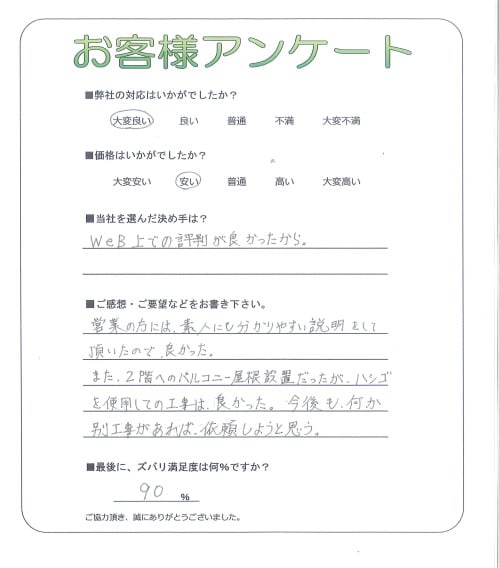 お客様アンケート
■弊社の対応はいかがでしたか？
大変良い 良い 普通 不満 大変不満
■価格はいかがでしたか？
大変安い 安い 普通 高い 大変高い
■当社を選んだ決め手は？
WeB上での評判が良かったから。
■ご感想・ご要望などをお書き下さい。
営業の方には、素人にも分かりやすい説明をして
頂いたので、良かった。
また、2階へのバルコニー屋根設置だったが、ハシゴ
を使用しての工事は、良かった。今後も、何か
別工事があれば、依頼しようと思う。
■最後に、ズバリ満足度は何%ですか？
90 %
ご協力頂き、誠にありがとうございました。